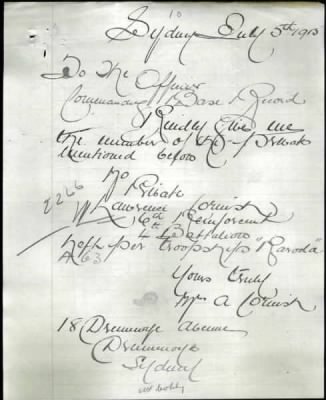 Sydney July 5th 191
To The Officer
Commanding Base Record
Kindly Give me
the number of the
Mentioned below
No Private
2266
Lawrence Cornish
16th Reinforcement
4 Battalion
Left per troopship "Karoola"
A 63
Yours truly
Mrs A Cornish
18 Drummoyne Avenue
Drummoyne
Sydney